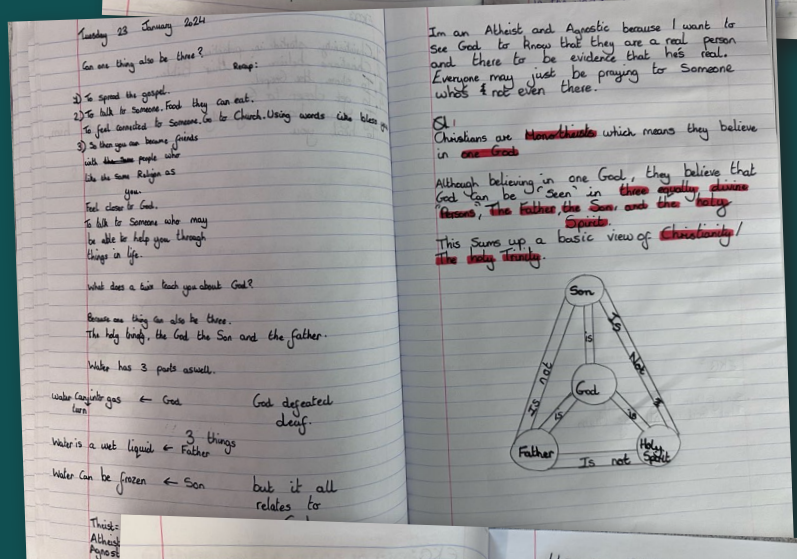 Tuesday 23 January 2024
Can one thing also be three?
Recap:
1) To spread the gospel.
2) To talk to someone. Food they can eat.
To feel connected to someone. Go to Church. Using words like bless you
3) So then you can become friends
with people who
like the same Religion as
you.
Feel closer to God.
To talk to someone who may
be able to help you through
things in life.
What does a twix teach you about God?
Because one thing can also be three.
The holy trinity, the God the Son and the father.
Water has 3 parts aswell.
Water can turn into gas ← God
God defeated
deaf.
Water is a wet liquid ← 3 things
Father
Water can be frozen ← Son
but it all
relates to
Theist=
Atheist
Agnost
Im an Atheist and Agnostic because I want to
see God to know that they are a real person
and there to be evidence that hes real.
Everyone may just be praying to someone
who's not even there.
Christians are Monotheists which means they believe
in one God
Although believing in one God, they believe that
God can be "seen" in three equally divine
"Persons", The Father, the Son, and the holy
Spirit.
This sums up a basic view of Christianity/
The holy Trinity.
Son
is not
is
Is Not
God
is
is
Father
Is not
Holy
Spirit